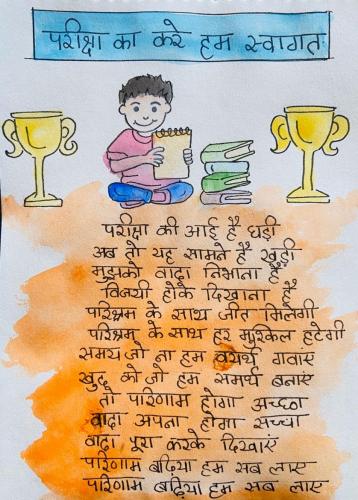 परीक्षा का करे हम स्वागत
परीक्षा की आई है घड़ी
अब तो यह सामने है खड़ी
मुझको वादा निभाना है
विजयी होके दिखाना है
परिश्रम के साथ जीत मिलेगी
परिश्रम के साथ हर मुश्किल हटेगी
समय जो ना हम वयर्थ गवाएं
खुद को जो हम समर्थ बनाएं
तो परिणाम होगा अच्छा
वादा अपना होगा सच्चा
वादा पूरा करके दिखाएं
परिणाम बढ़िया हम सब लाए
परिणाम बढ़िया हम सब लाए